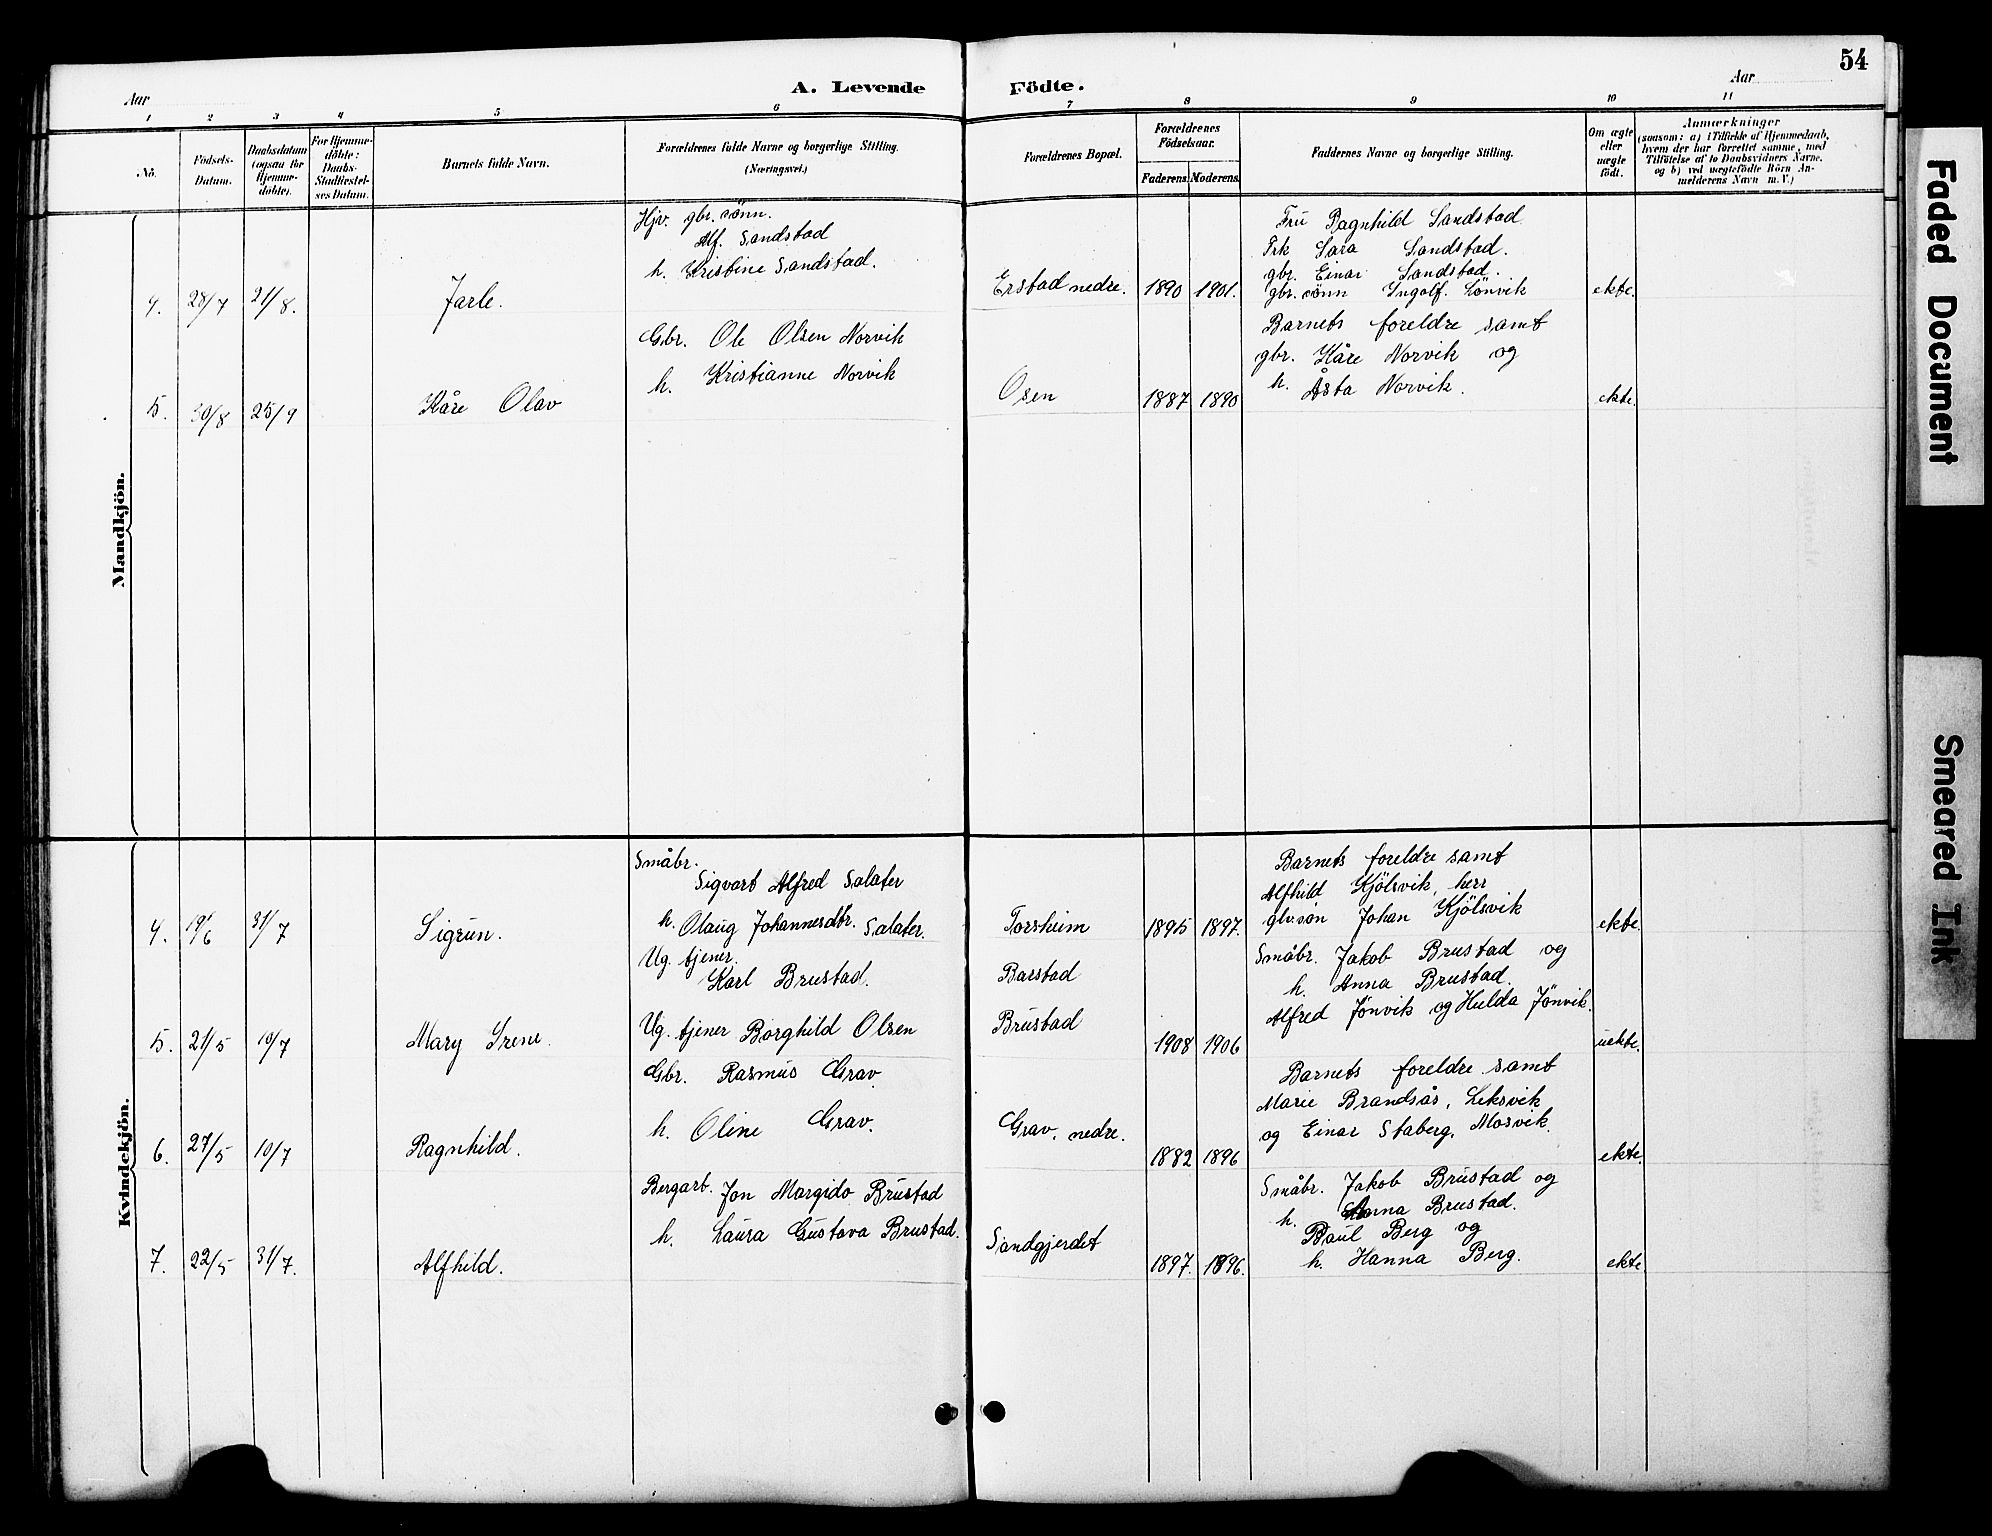 54
Aar
A. Levende Födte.
Aar
1 2 3 4 5 6 7 8 9 10 11
No.
Födsels-
Datum.
Daabsdatum
(ogsaa for
Hjemme-
döbte).
For Hjemme-
döbte:
Daabs-
Stadfæstel-
ses Datum.
Barnets fulde Navn.
Forældrenes fulde Navne og borgerlige Stilling.
(Næringsvei.)
Forældrenes Bopæl.
Forældrenes
Födselsaar.
Faderens. Moderens.
Faddernes Navne og borgerlige Stilling.
Om ægte
eller
uægte
födt.
Anmærkninger
(saasom: a) i Tilfælde af Hjemmedaab,
hvem der har forrettet samme, med
Tilföielse af to Daabsvidners Navne,
og b) ved uægtefödte Börn An-
melderens Navn m. V.)
Mandkjön.
4. 28/7 21/8. Jarle.
Hjv. gbr. sönn.
Alf. Sandstad
h. Kristine Sandstad.
Erstad nedre. 1890 1901.
Fru Ragnhild Sandstad
Frk Sara Sandstad.
gbr. Einar Sandstad.
gbr. sönn Ingolf. Lönvik
ekte.
5. 30/8 25/9 Kåre Olav
Gbr. Ole Olsen Norvik
h. Kristianne Norvik
Osen 1887 1890
Barnets foreldre samt
gbr. Kåre Norvik og
h. Åsta Norvik.
ekte.
Kvindekjön.
4. 19/6 31/7 Sigrun.
Småbr.
Sigvart Alfred Salater
h. Olaug Johannesdtr. Salater.
Torsheim 1895 1897.
Barnets foreldre samt
Alfhild Kjölsvik, herr
gbr.sön Johan Kjölsvik
ekte.
5. 21/5 10/7 Mary Irene.
Ug. tjener.
Karl Brustad.
Ug. tjener Borghild Olsen
Barstad
Brustad
1908 1906
Småbr. Jakob Brustad og
h. Anna Brustad.
Alfred Jönvik og Hulda Jönvik.
uekte.
6. 27/5 10/7 Ragnhild.
Gbr. Rasmus Grav
h. Oline Grav.
Grav, nedre.
1882 1896
Barnets foreldre samt
Marie Brandsås, Leksvik
og Einar Staberg, Mosvik.
ekte.
7. 22/5 31/7. Alfhild.
Bergarb. Jon Margido Brustad
h. Laura Gustava Brustad.
Sandgjerdet
1897. 1896.
Småbr. Jakob Brustad og
h. Anna Brustad.
Paul Berg og
h. Hanna Berg.
ekte
Faded Document
Smeared Ink